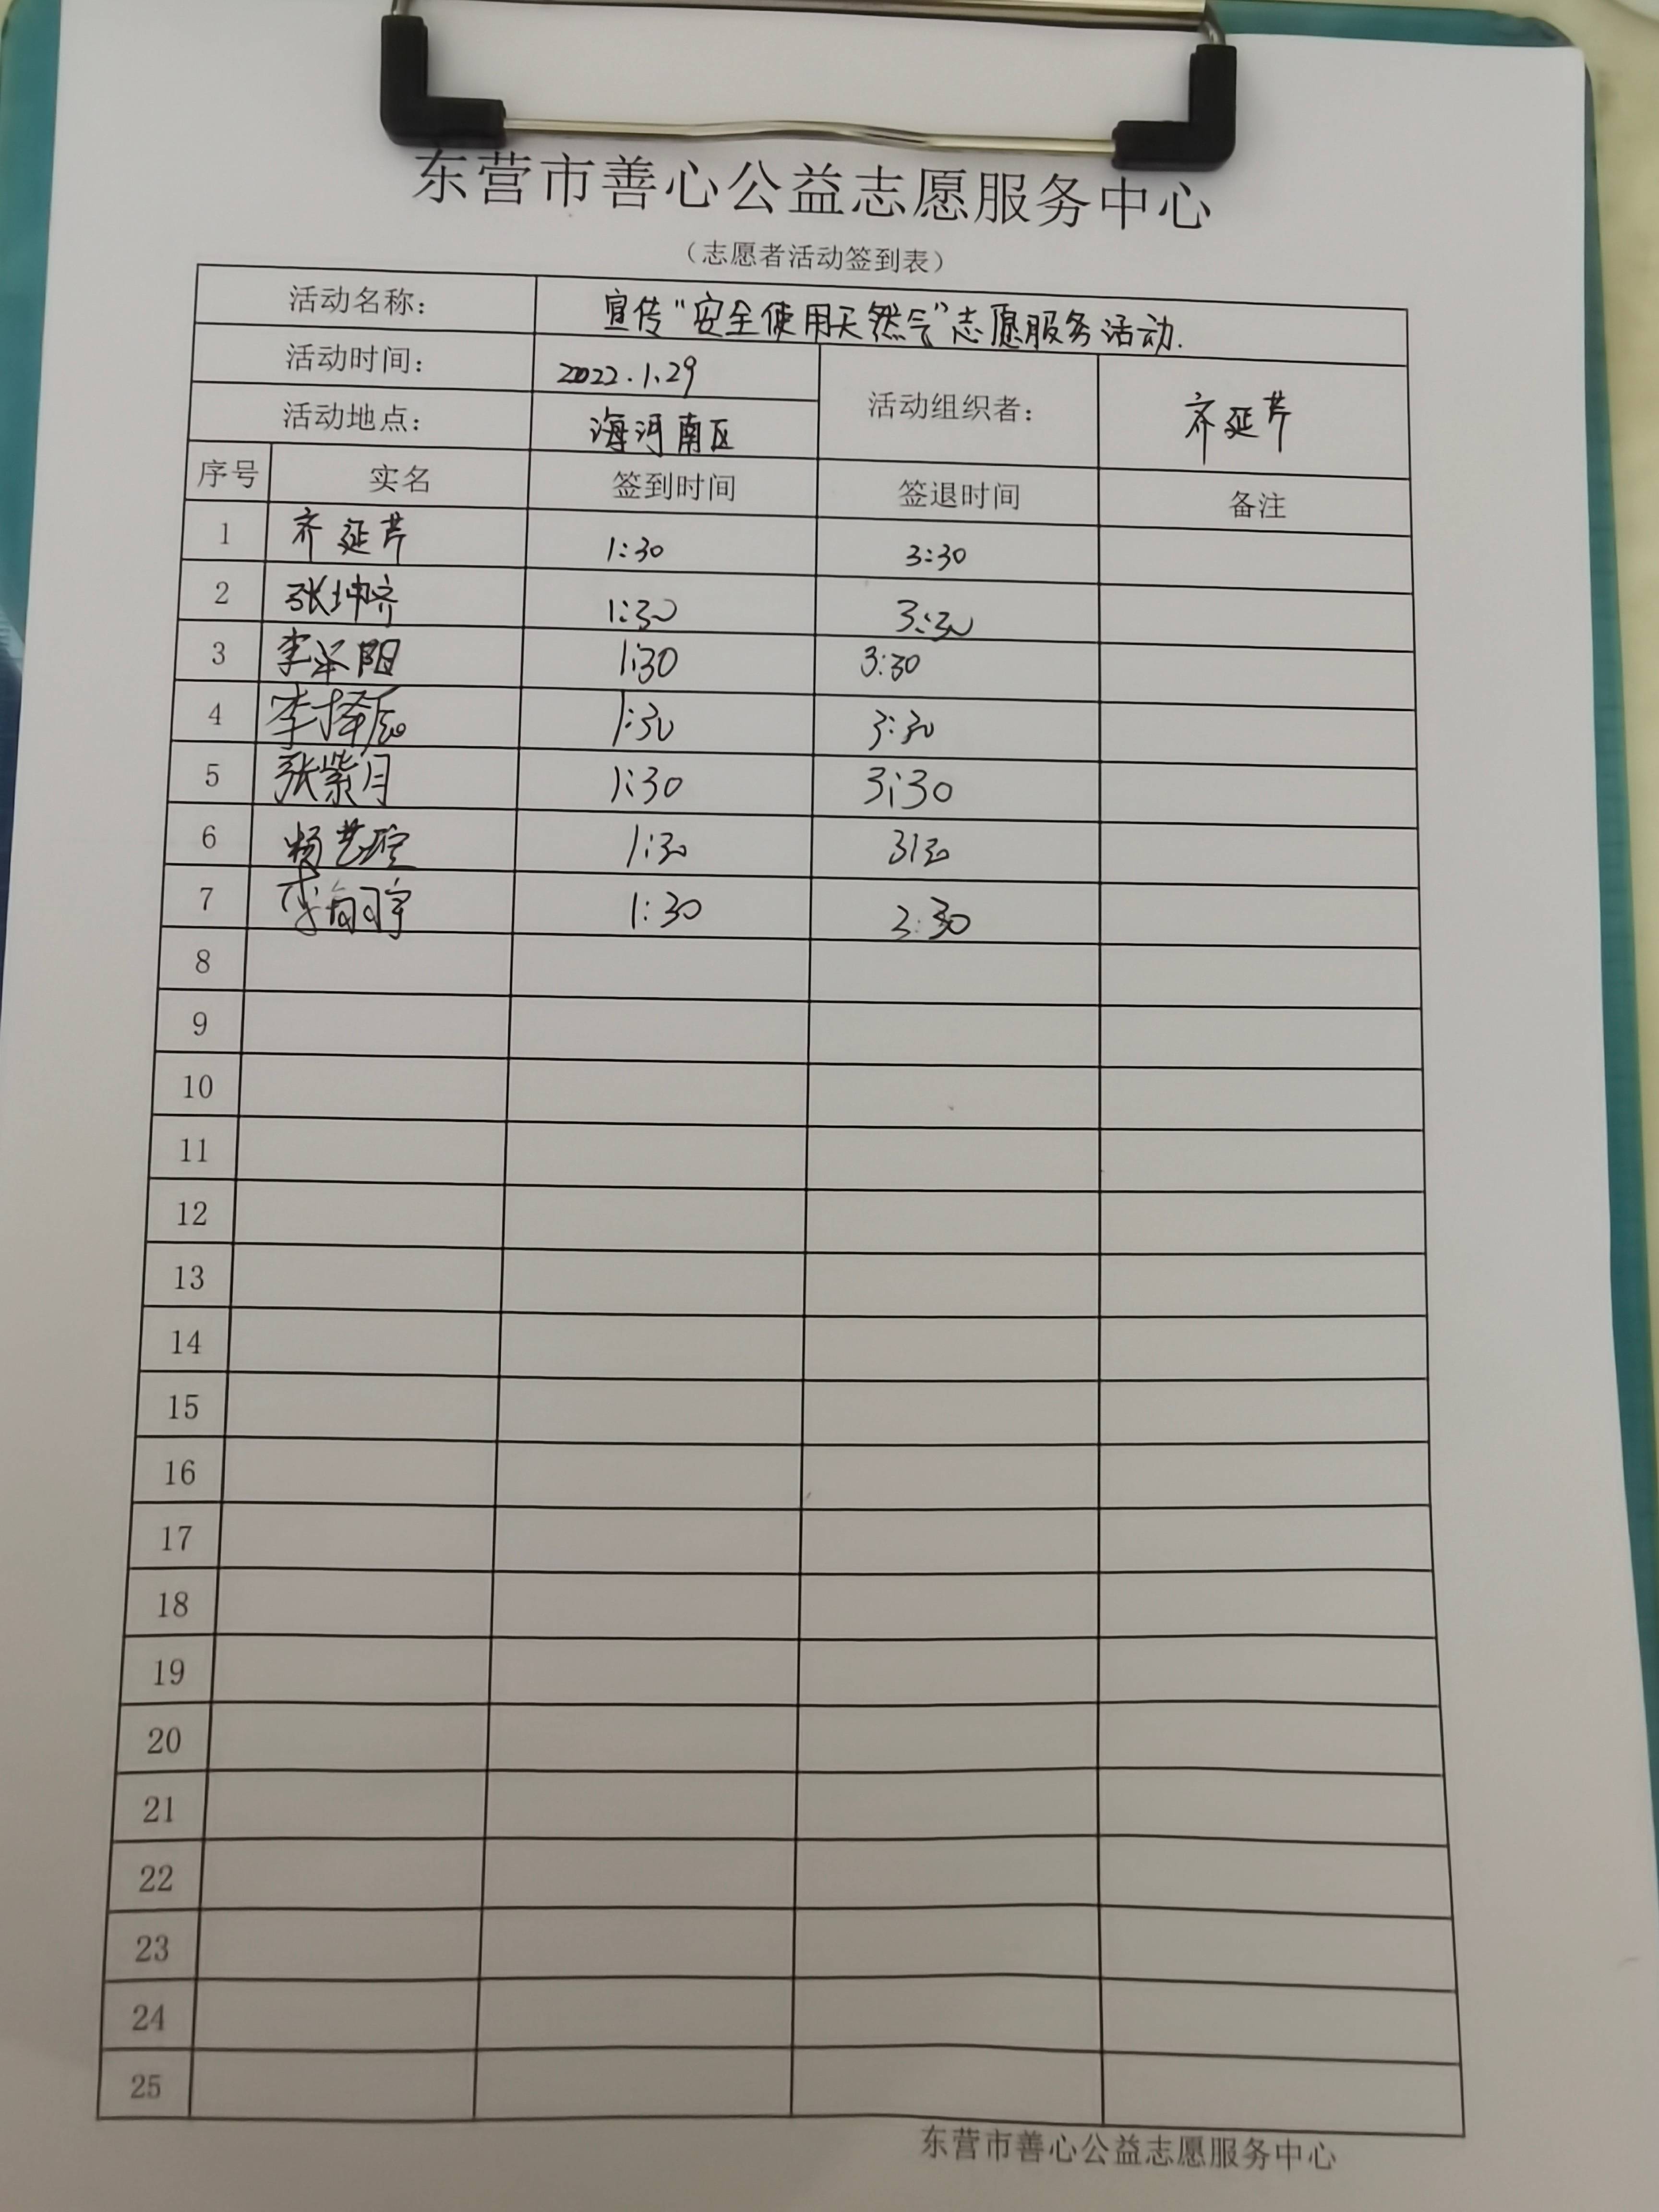 东营市善心公益志愿服务中心
（志愿者活动签到表）
活动名称： 宣传“安全使用天然气”志愿服务活动.
活动时间： 2022.1.29
活动组织者： 齐延芹
活动地点： 海河南区
序号 实名 签到时间 签退时间 备注
1 齐延芹 1:30 3:30
2 张坤济 1:30 3:30
3 李泽阳 1:30 3:30
4 李择辰 1:30 3:30
5 张紫月 1:30 3:30
6 杨艺瑄 1:30 3:30
7 李 宇 1:30 3:30
8
9
10
11
12
13
14
15
16
17
18
19
20
21
22
23
24
25
东营市善心公益志愿服务中心